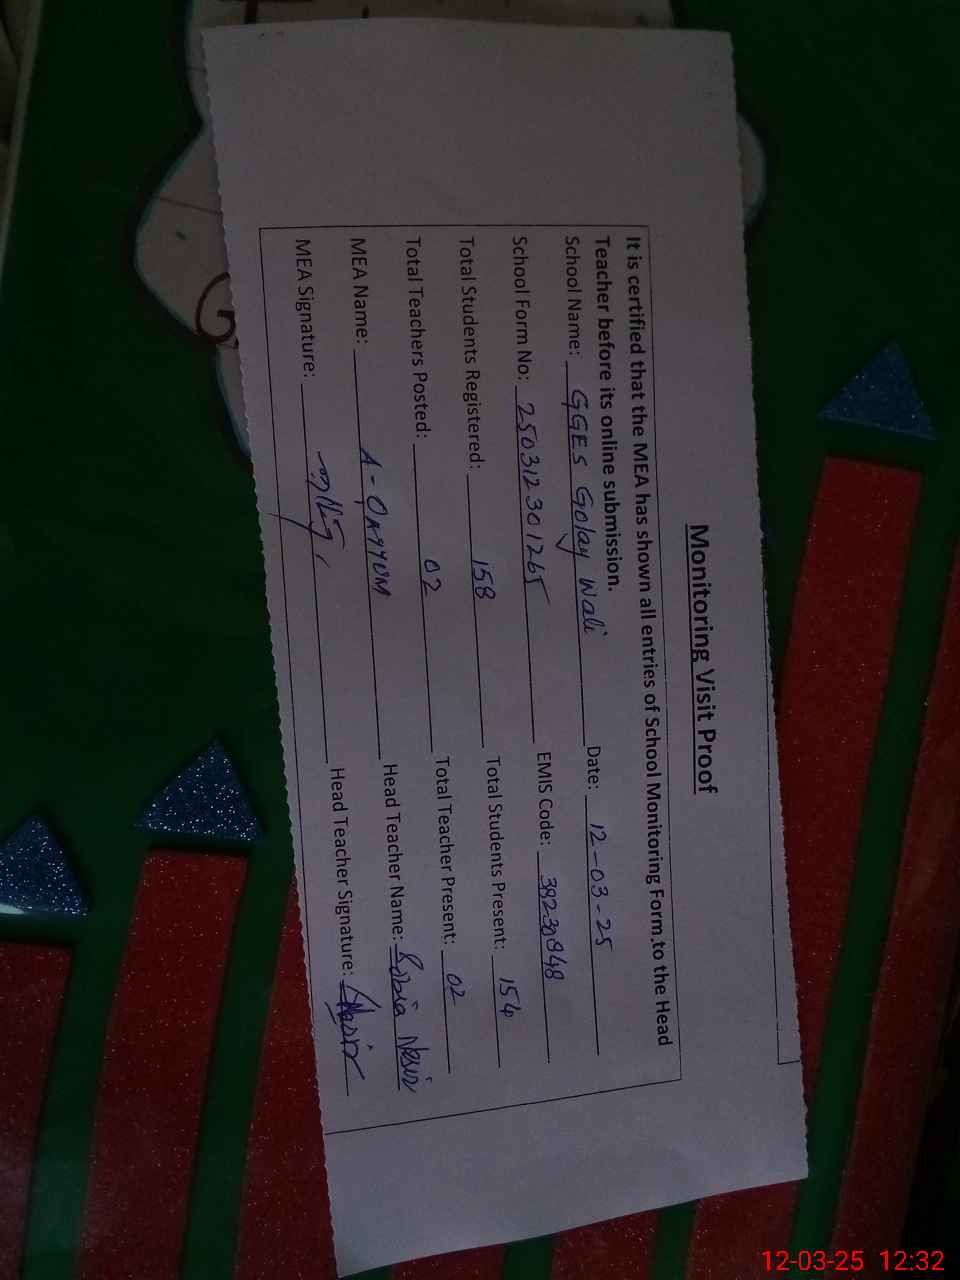 Monitoring Visit Proof
It is certified that the MEA has shown all entries of School Monitoring Form.to the Head
Teacher before its online submission.
School Name: GGES Golay Wali Date: 12-03-25
School Form No: 250312301265 EMIS Code: 38230848
Total Students Registered: 158 Total Students Present: 154
Total Teachers Posted: 02 Total Teacher Present: 02
MEA Name: A-QAYYUM Head Teacher Name: Robia Nasir
MEA Signature: Head Teacher Signature:
12-03-25 12:32